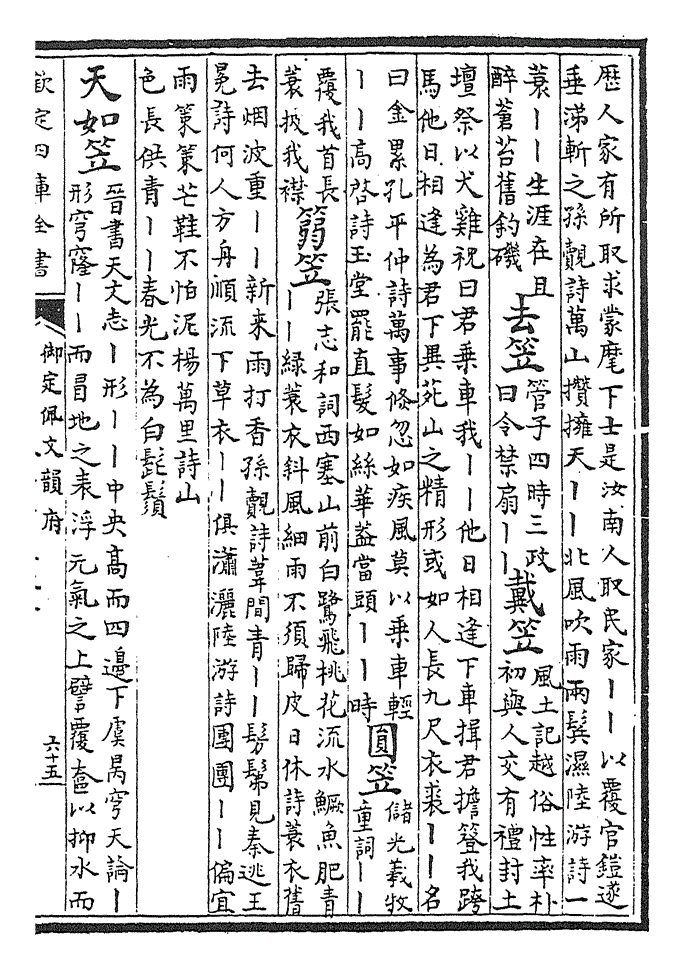 歴人家有所取求蒙麾下士是汝南人取民家丨丨以覆官鎧遂
垂涕斬之孫覿詩萬山攢擁天丨丨北風吹雨兩鬂濕陸游詩一
蓑丨丨生涯在且
醉蒼苔舊釣磯
去笠
管子四時三政
曰令禁扇丨丨
戴笠
風土記越俗性率朴
初與人交有禮封土
壇祭以犬雞祝曰君乘車我丨丨他日相逢下車揖君擔簦我跨
馬他日相逢為君下異苑山之精形或如人長九尺衣裘丨丨名
曰金累孔平仲詩萬事倐忽如疾風莫以乘車輕
丨丨高啓詩玉堂罷直髮如絲華蓋當頭丨丨時
圓笠
儲光義牧
童詞丨丨
覆我首長
蓑披我襟
篛笠
張志和詞西塞山前白鷺飛桃花流水鱖魚肥青
丨丨綠蓑衣斜風細雨不須歸皮日休詩蓑衣舊
去烟波重丨丨新来雨打香孫覿詩葦間青丨丨髣髴見秦逃王
冕詩何人方舟順流下草衣丨丨俱瀟灑陸游詩團團丨丨偏宜
雨策策芒鞋不怕泥楊萬里詩山
色長供青丨丨春光不為白髭鬚
天如笠
晉書天文志丨形丨丨中央高而四邊下虞昺穹天論丨
形穹窿丨丨而冒地之表浮元氣之上譬覆奩以抑水而
欽定四庫全書
御定佩文韻府
六十五